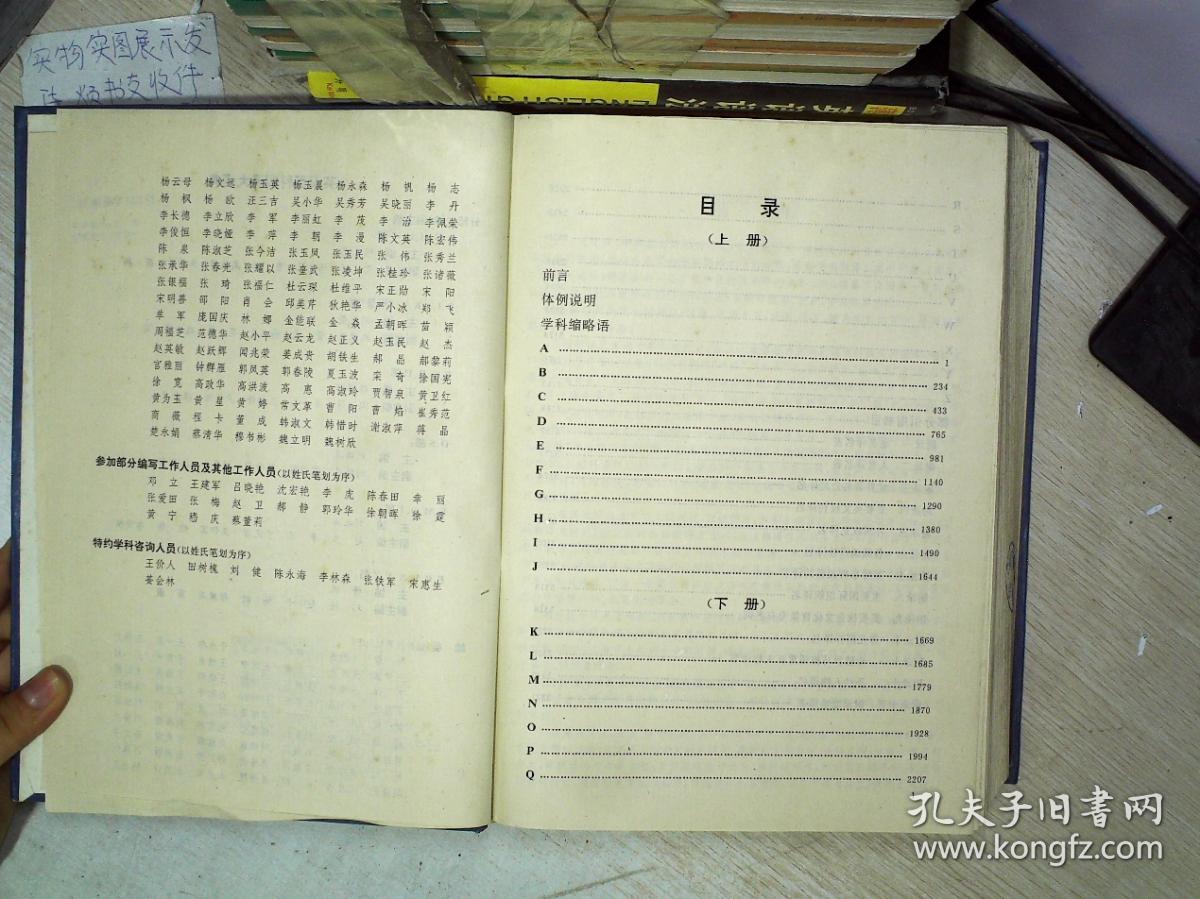 实物实图展示发
ENGLISH
杨云母 杨文远 杨玉英 杨玉晨 杨永森 杨帆 杨志
杨枫 杨欧 汪三吉 吴小华 吴秀芳 吴晓丽 李丹
李长德 李立欣 李军 李丽虹 李茂 李治 李佩荣
李俊恒 李晓娅 李萍 李朝 李漫 陈文英 陈宏伟
陈泉 陈淑芝 张今洁 张玉凤 张玉民 张伟 张秀兰
张承华 张春光 张耀以 张奎武 张凌坤 张桂玲 张诸薇
张银福 张琦 张福仁 杜云琛 杜维平 宋正勋 宋阳
宋明善 邵阳 肖会 邱美芹 狄艳华 严小冰 郑飞
单军 庞国庆 林娜 金能联 金焱 孟朝晖 苗颖
周福芝 范德华 赵小平 赵云龙 赵正义 赵玉民 赵杰
赵英敏 赵跃辉 闻兆荣 姜成贵 胡铁生 郝晶 郝黎莉
宫雅丽 钟群雁 郭凤英 郭春陵 夏玉波 栾奇 徐国宪
徐宽 高政华 高洪波 高惠 高淑玲 贾智泉 黄卫红
黄为玉 黄星 黄婷 常文革 曹阳 曹焰 崔秀范
商薇 程卡 董成 韩淑文 韩惜时 谢淑萍 蒋晶
楚永娟 蔡清华 穆书彬 魏立明 魏树欣
参加部分编写工作人员及其他工作人员(以姓氏笔划为序)
邓立 王建军 吕晓艳 沈宏艳 李虎 陈春田 单丽
张爱田 张梅 赵卫 郝静 郭玲华 徐朝晖 徐霆
黄宁 嵇庆 蔡萱莉
特约学科咨询人员(以姓氏笔划为序)
王价人 田树槐 刘健 陈永海 李林森 张铁军 宋惠生
姜会林
目 录
(上 册)
前言
体例说明
学科缩略语
A 1
B 234
C 433
D 765
E 981
F 1140
G 1290
H 1380
I 1490
J 1644
(下 册)
K 1669
L 1685
M 1779
N 1870
O 1928
P 1994
Q 2207
孔夫子旧书网
www.kongfz.com